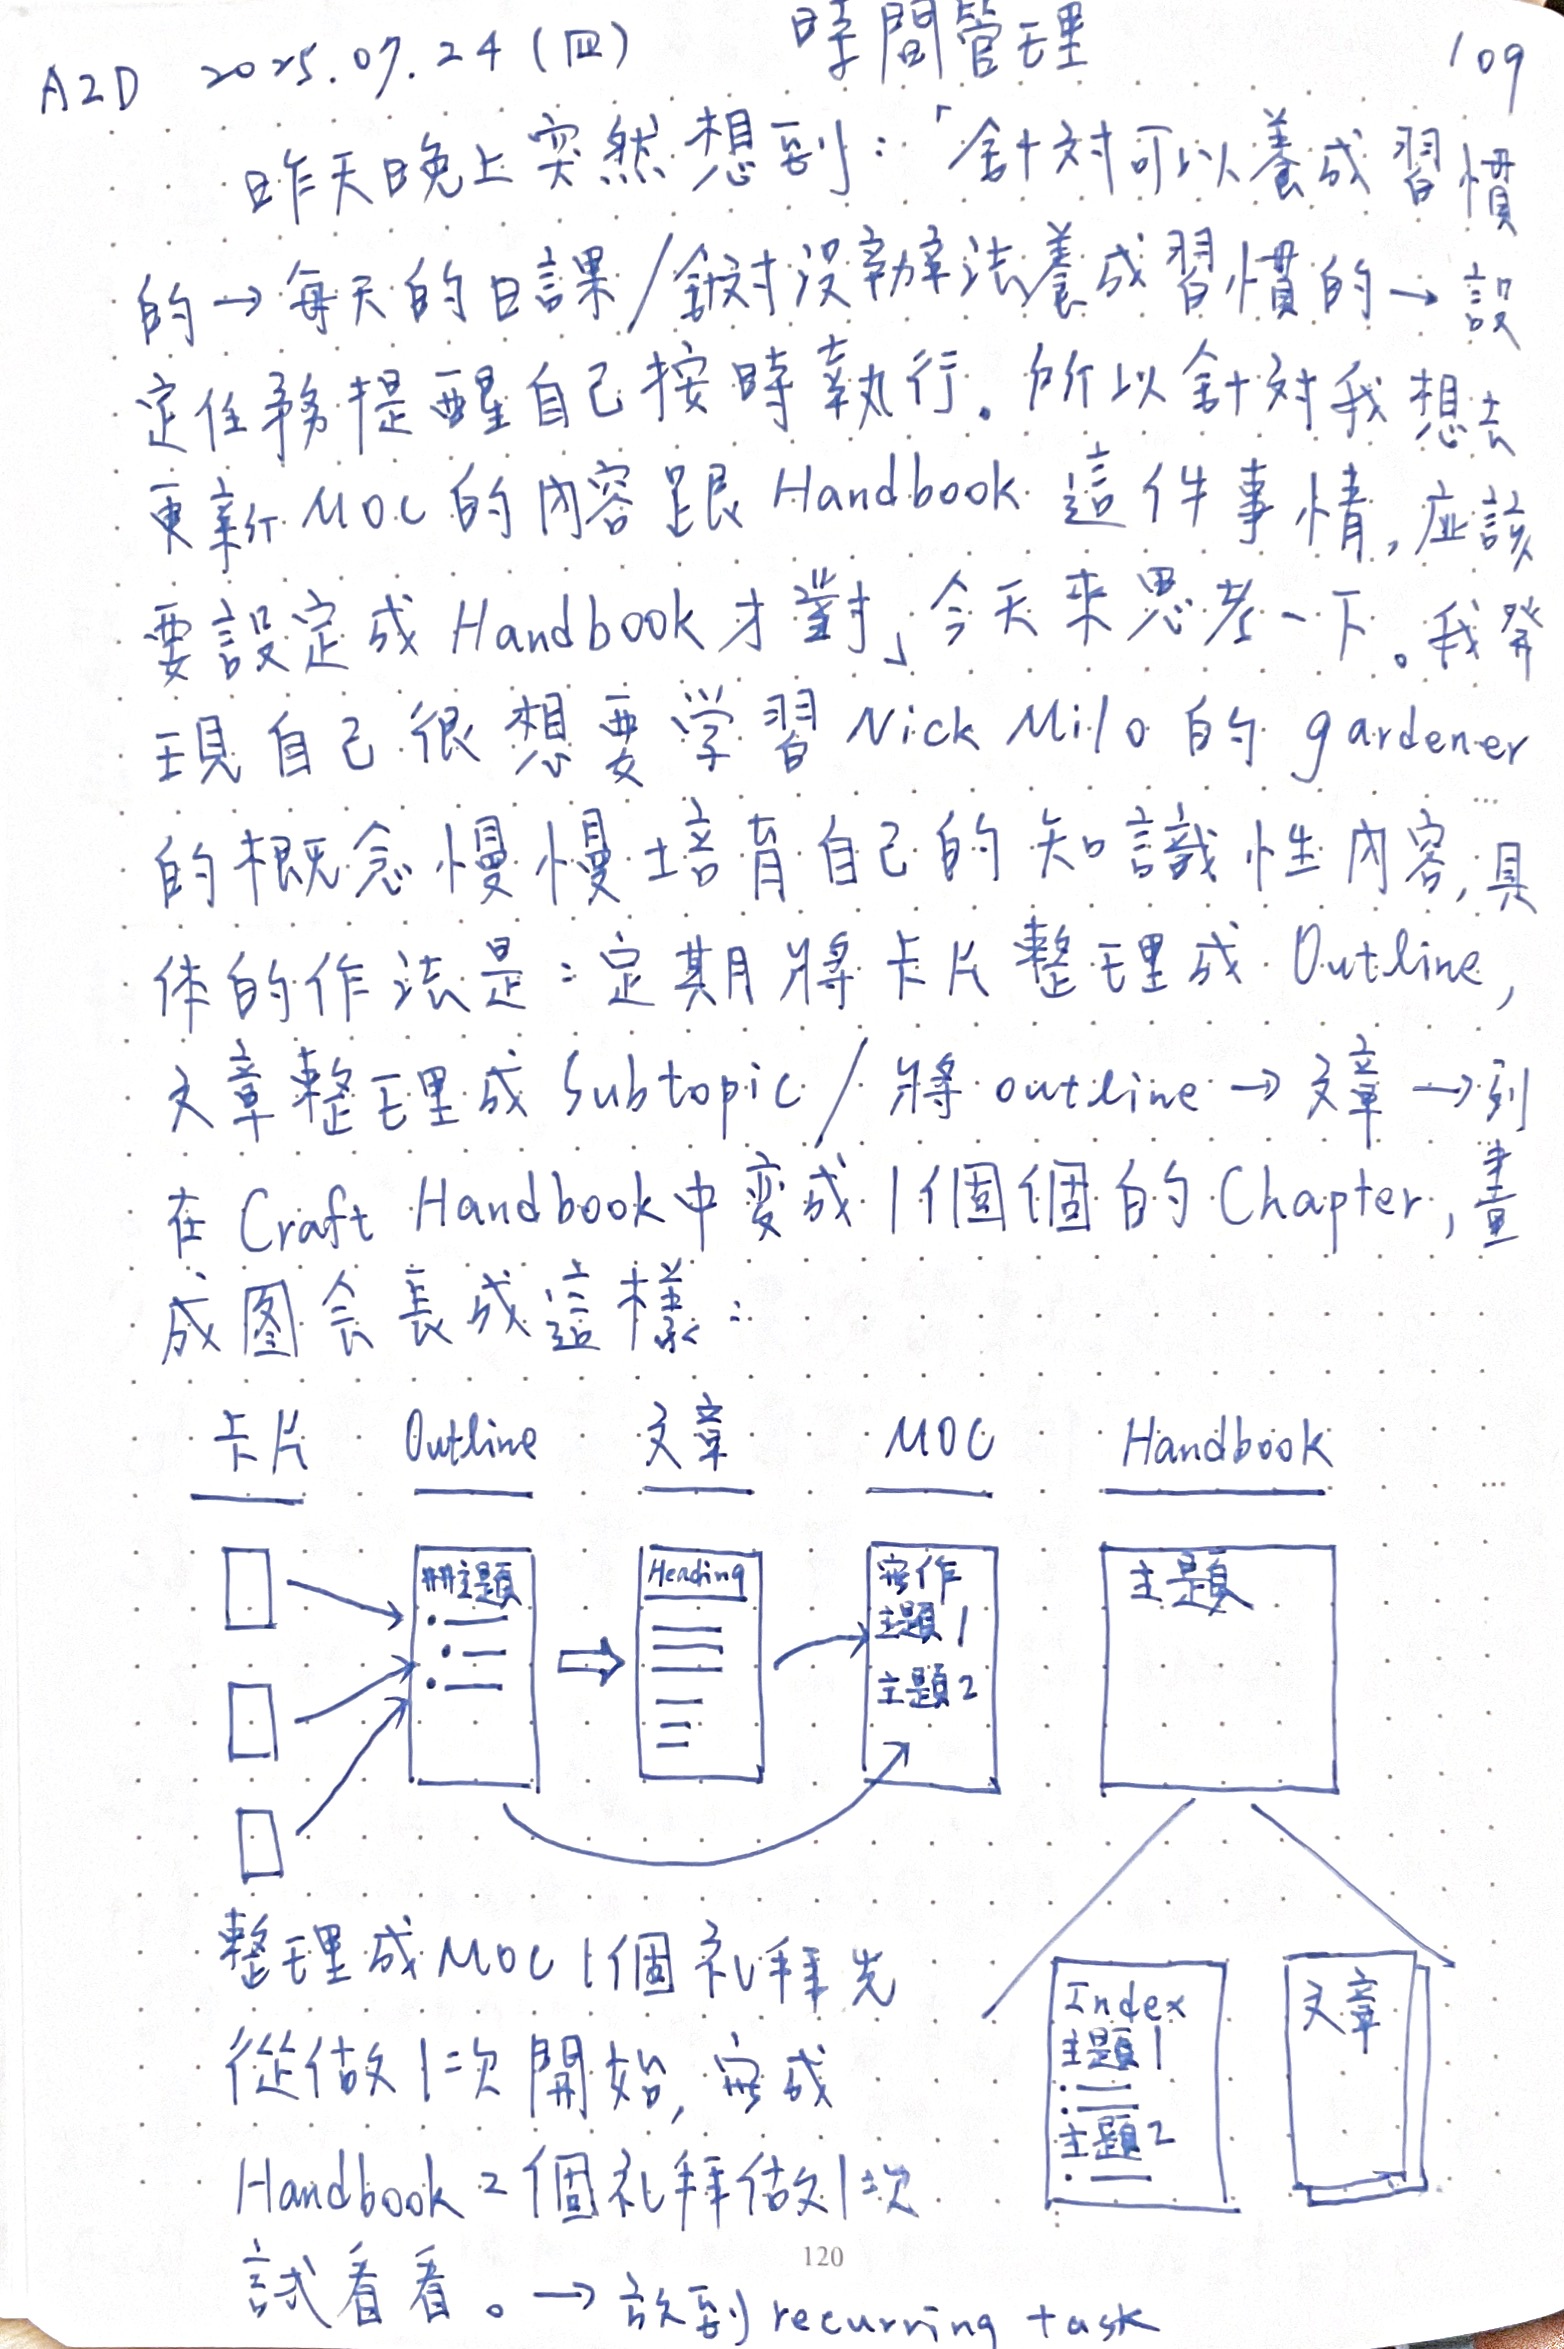 A2D 2025.07.24(四) 時間管理 109
昨天晚上突然想到：「針对可以養成習慣
的→每天的日課/針对没辦法養成習慣的→設
定任務提醒自己按時執行。所以針対我想去
更新MOC的内容跟Handbook這件事情,应該
要設定成Handbook才對」今天來思考一下。我発
現自己很想要学習Nick Milo的gardener
的概念慢慢培育自己的知識性内容,具
体的作法是：定期將卡片整理成Outline,
文章整理成Subtopic/將outline→文章→到
在Craft Handbook中变成1個個的Chapter,畫
成图会長成這樣：
卡片 Outline 文章 MOC Handbook
##主題
Heading
实作
主題1
主題2
主題
整理成MOC 1個礼拜先
從做1次開始,完成
Handbook 2個礼拜做1次
試看看。→放到recurring task
Index
主題1
主題2
文章
120